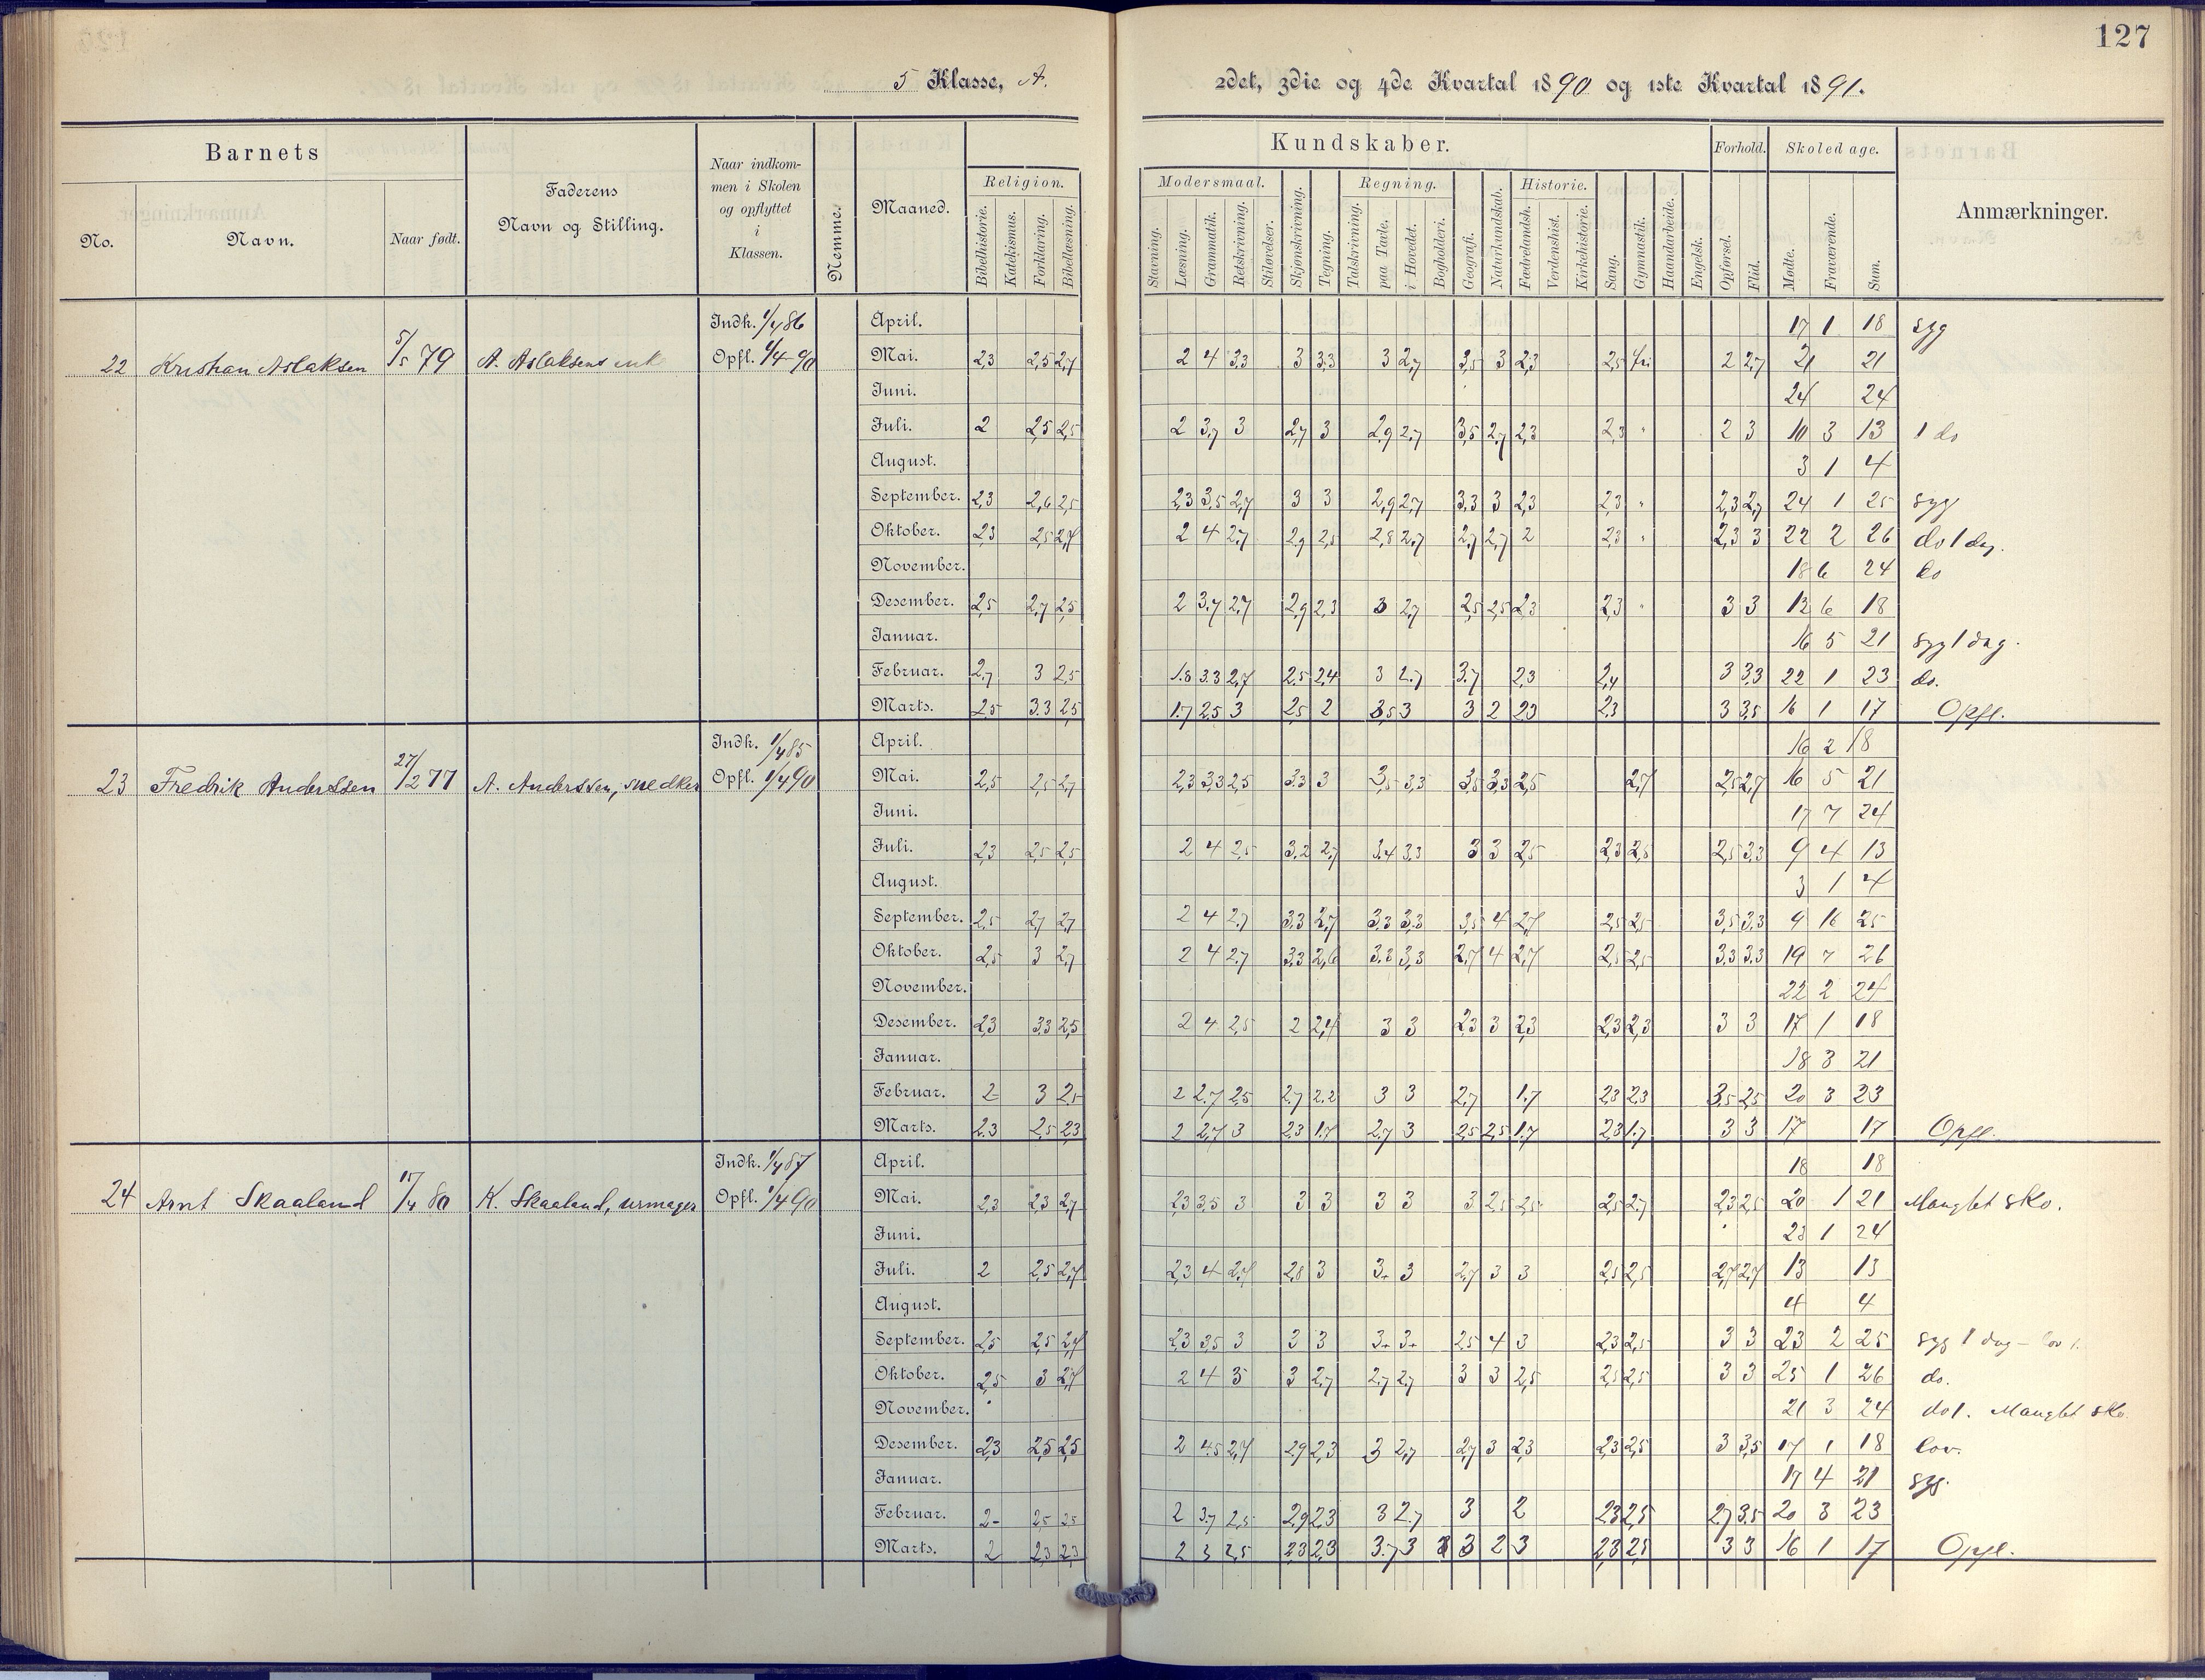 127
5 Klasse, A.
2det, 3die og 4de Kvartal 1890 og 1ste Kvartal 1891.
Barnets
No.
Navn.
Naar født.
Faderens
Navn og Stilling.
Naar indkom-
men i Skolen
og opflyttet
i
Klassen.
Nemme.
Maaned.
Kundskaber.
Religion.
Bibelhistorie.
Katekismus.
Forklaring.
Bibellæsning.
Modersmaal.
Stavning.
Læsning.
Grammatik.
Retskrivning.
Stiløvelser.
Skjønskrivning.
Tegning.
Regning.
Talskrivning.
paa Tavle.
i Hovedet.
Bogholderi.
Geografi.
Naturkundskab.
Historie.
Fædrelandsh.
Verdenshist.
Kirkehistorie.
Sang.
Gymnastik.
Haandarbeide.
Engelsk.
Forhold.
Opførsel.
Flid.
Skoledage.
Mødte.
Fraværende.
Sum.
Anmærkninger.
22 Kristian Aslaksen 5/5 79 A. Aslaksens enk
Indk. 1/4 86
Opfl. 1/4 90
April. 17 1 18 syg
Mai. 2,3 2,5 2,7 2 4 3,3 3 3,3 3 2,7 3,5 3 2,3 2,5 fri 2 2,7 21 21
Juni. 24 24
Juli. 2 2,5 2,5 2 3,7 3 2,7 3 2,9 2,7 3,5 2,7 2,3 2,3 " 2 3 10 3 13 1 do
August. 3 1 4
September. 2,3 2,6 2,5 2,3 3,5 2,7 3 3 2,9 2,7 3,3 3 2,3 2,3 " 2,3 2,7 24 1 25 syg
Oktober. 2,3 2,5 2,7 2 4 2,7 2,9 2,5 2,8 2,7 2,7 2,7 2 2,3 " 2,3 3 22 2 26 do 1 dag.
November. 18 6 24 do
Desember. 2,5 2,7 2,5 2 3,7 2,7 2,9 2,3 3 2,7 2,5 2,5 2,3 2,3 " 3 3 12 6 18
Januar. 16 5 21 syg 1 dag.
Februar. 2,7 3 2,5 1.8 3.3 2,7 2.5 2.4 3 2.7 3.7 2,3 2,4 3 3,3 22 1 23 do.
Marts. 2,5 3.3 2,5 1.7 2,5 3 2,5 2 3,5 3 3 2 2,3 2,3 3 3,5 16 1 17 Opfl.
23 Fredrik Anderssen 27/2 77 A. Anderssen, snedker
Indk. 1/4 85
Opfl. 1/4 90
April. 16 2 18
Mai. 2,5 2,5 2,7 2,3 3,3 2,5 3,3 3 3,5 3,3 3,5 3,3 2,5 2,7 2,5 2,7 16 5 21
Juni. 17 7 24
Juli. 2,3 2,5 2,5 2 4 2,5 3,2 2,7 3,4 3,3 3 3 2,5 2,3 2,5 2,5 3,3 9 4 13
August. 3 1 4
September. 2,5 2,7 2,7 2 4 2,7 3,3 2,7 3,3 3,3 3,5 4 2,7 2,5 2,5 3,5 3,3 9 16 25
Oktober. 2,5 3 2,7 2 4 2,7 3,3 2,6 3,3 3,3 2,7 4 2,7 2,5 2,5 3,3 3,3 19 7 26
November. 22 2 24
Desember. 2,3 3,3 2,5 2 4 2,5 2 2,4 3 3 2,3 3 2,3 2,3 2,3 3 3 17 1 18
Januar. 18 3 21
Februar. 2 3 2,5 2 2.7 2,5 2.7 2.2 3 3 2,7 1.7 2,3 2,3 3,5 2,5 20 3 23
Marts. 2.3 2,5 2,3 2 2,7 3 2,3 1.7 2.7 3 2,5 2,5 1.7 2,3 1.7 3 3 17 17 Opfl.
24 Arnt Skaaland 15/4 80 K. Skaaland, urmager
Indk. 1/4 87
Opfl. 1/4 90
April. 18 18
Mai. 2,3 2,3 2,7 2,3 3,5 3 3 3 3 3 3 2,5 2,5 2,5 2,7 2,3 2,5 20 1 21 Manglet sko.
Juni. 23 1 24
Juli. 2 2,5 2,7 2,3 4 2,7 2,8 3 3+ 3 2,7 3 3 2,5 2,5 2,7 2,7 13 13
August. 4 4
September. 2,5 2,5 2,7 2,3 3,5 3 3 3 3+ 3+ 2,5 4 3 2,3 2,5 3 3 23 2 25 syg 1 dag – lov 1.
Oktober. 2,5 3 2,7 2 4 3 3 2,7 2,7 2,7 3 3 2,5 2,5 2,5 3 3 25 1 26 do.
November. 21 3 24 do 1. Manglet sko.
Desember. 2,3 2,5 2,5 2 4,5 2,7 2,9 2,3 3 2,7 2,7 3 2,3 2,3 2,5 3 3,5 17 1 18 lov.
Januar. 17 4 21 syg.
Februar. 2- 2,5 2,5 2 3,7 2,5 2,9 2,3 3 2.7 3 2 2,3 2,5 2,7 3,5 20 3 23
Marts. 2 2,3 2,3 2 3 2,5 2,3 2,3 3.7 3 3 2 3 2,3 2,5 3 3 16 1 17 Opfl.